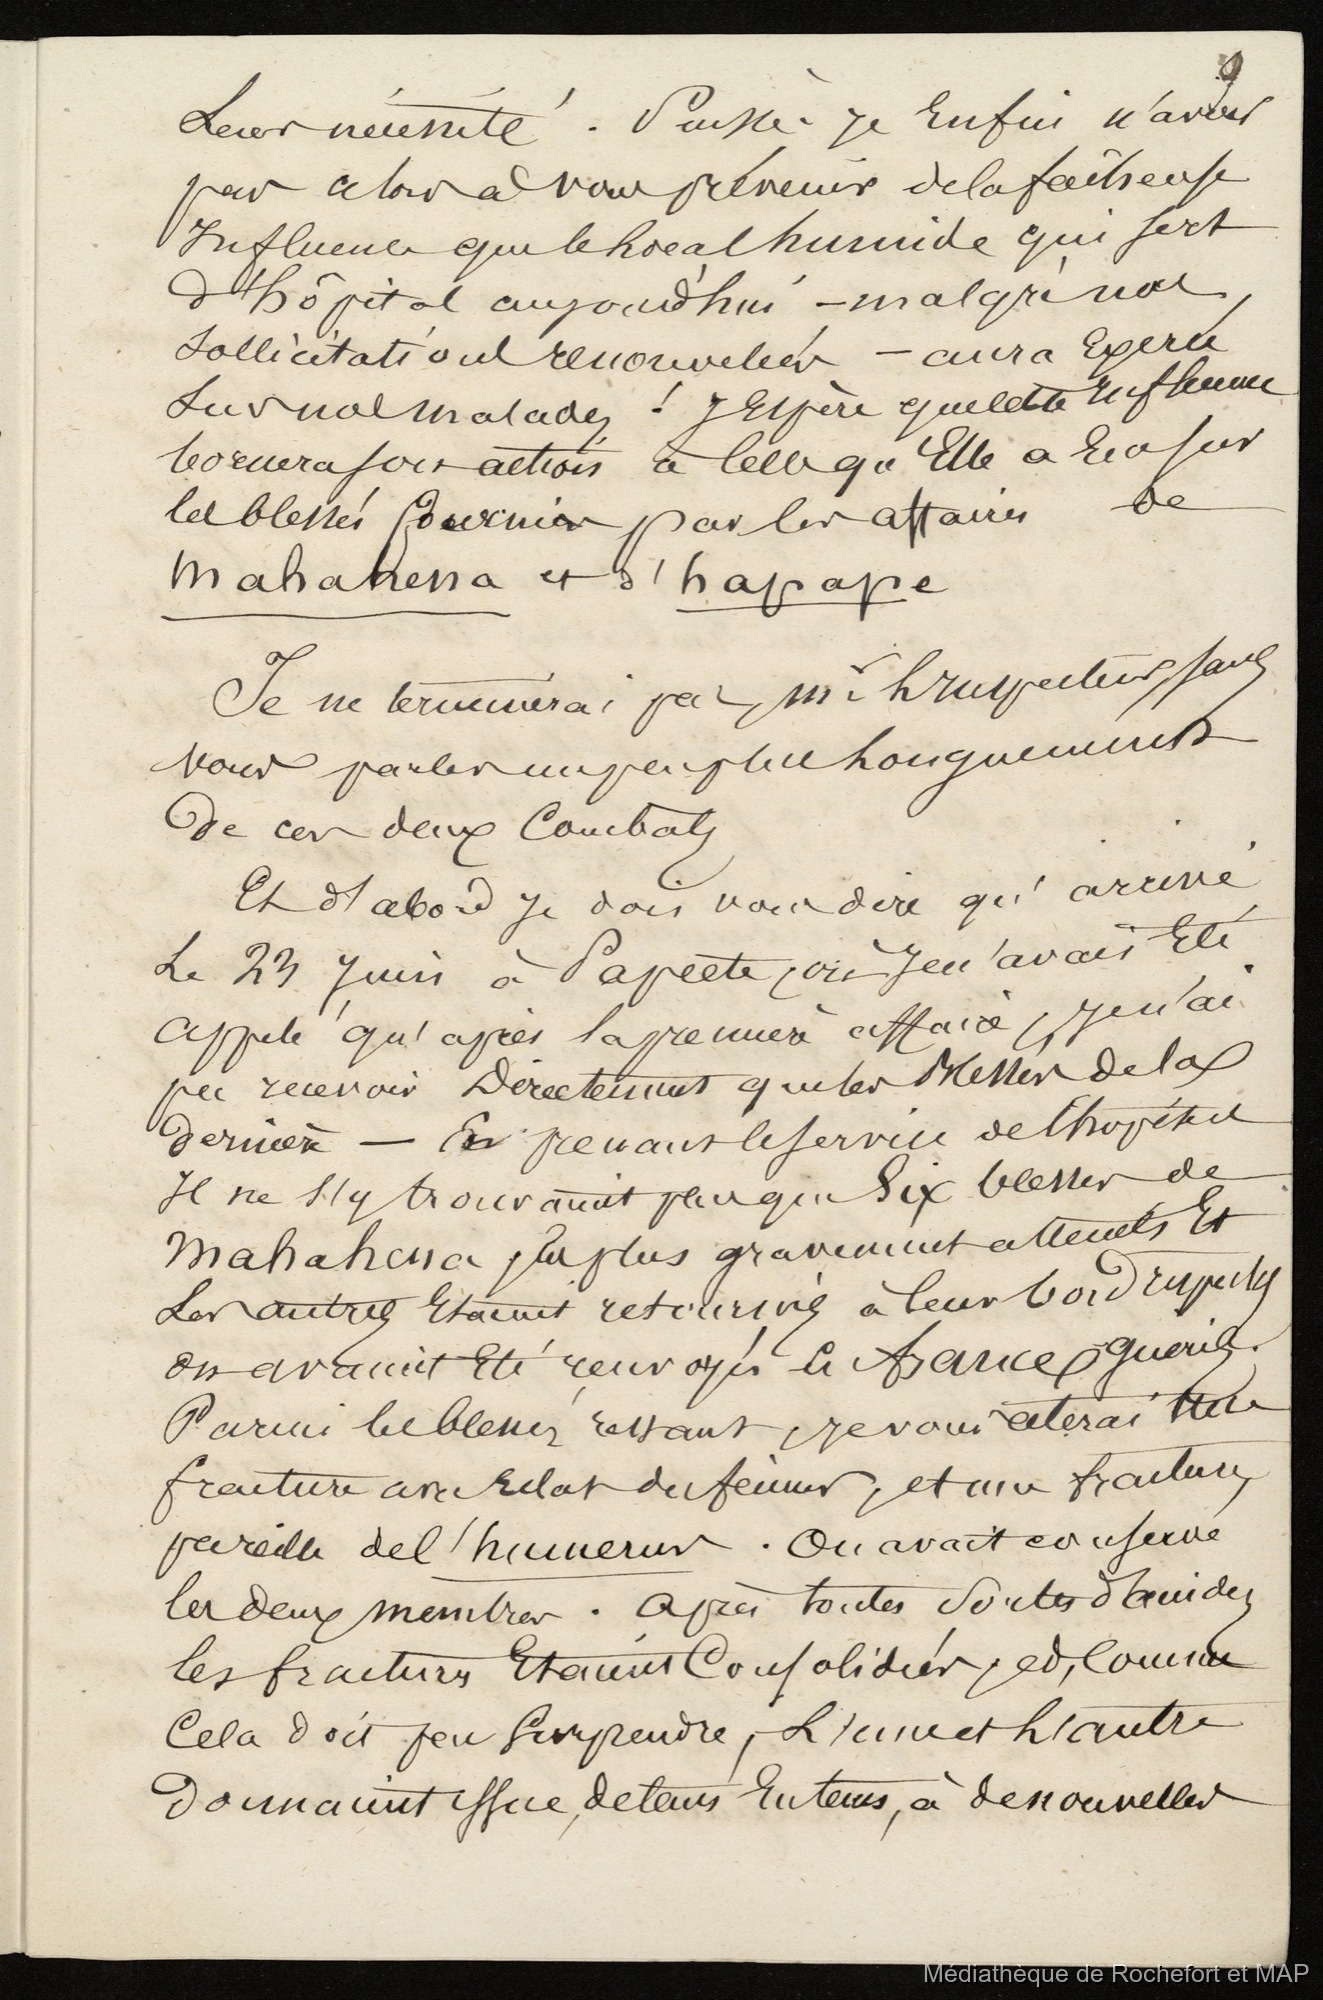 9
Leur nécessité. Puissé-je Enfin n'avoir
pas alors à vous prévenir de la fâcheuse
Influence que le Local humide qui sert
d'hôpital aujourd'hui – malgré nos
Sollicitations renouvelées – aura Exercé
Sur nos malades ! J'Espère que cette Influence
bornera son action à celle qu'Elle a Eu sur
les blessés fournis par les affaires de
Mahahena et d'hapape
Je ne terminerai pas, Mr L'Inspecteur, sans
vous parler un peu plus Longuement
De ces deux Combats
Et d'abord je dois vous dire qu'arrivé
Le 23 Juin à Papeete, où Je n'avais Eté
appelé qu'après la première affaire, je n'ai
pu recevoir Directement que les Blessés de la
dernière — En prenant le service de l'hôpital
Il ne s'y trouvaient plus que Six blessés de
Mahahena, les plus gravement atteints Et
Les autres Etaient retournés à leur bord respectif
ou avaient Eté renvoyés en france guéris.
Parmi les blessés restant, je vous citerai Une
fracture avec Eclat du fémur, et une fracture
pareille de l'humerus. On avait conservé
les deux membres. Après toutes Sortes d'accidens
les fractures Etaient Consolidées, et, Comme
Cela doit peu Surprendre, L'une et L'autre
Donnaient issue, de tems En tems, à de nouvelles
Médiathèque de Rochefort et MAP